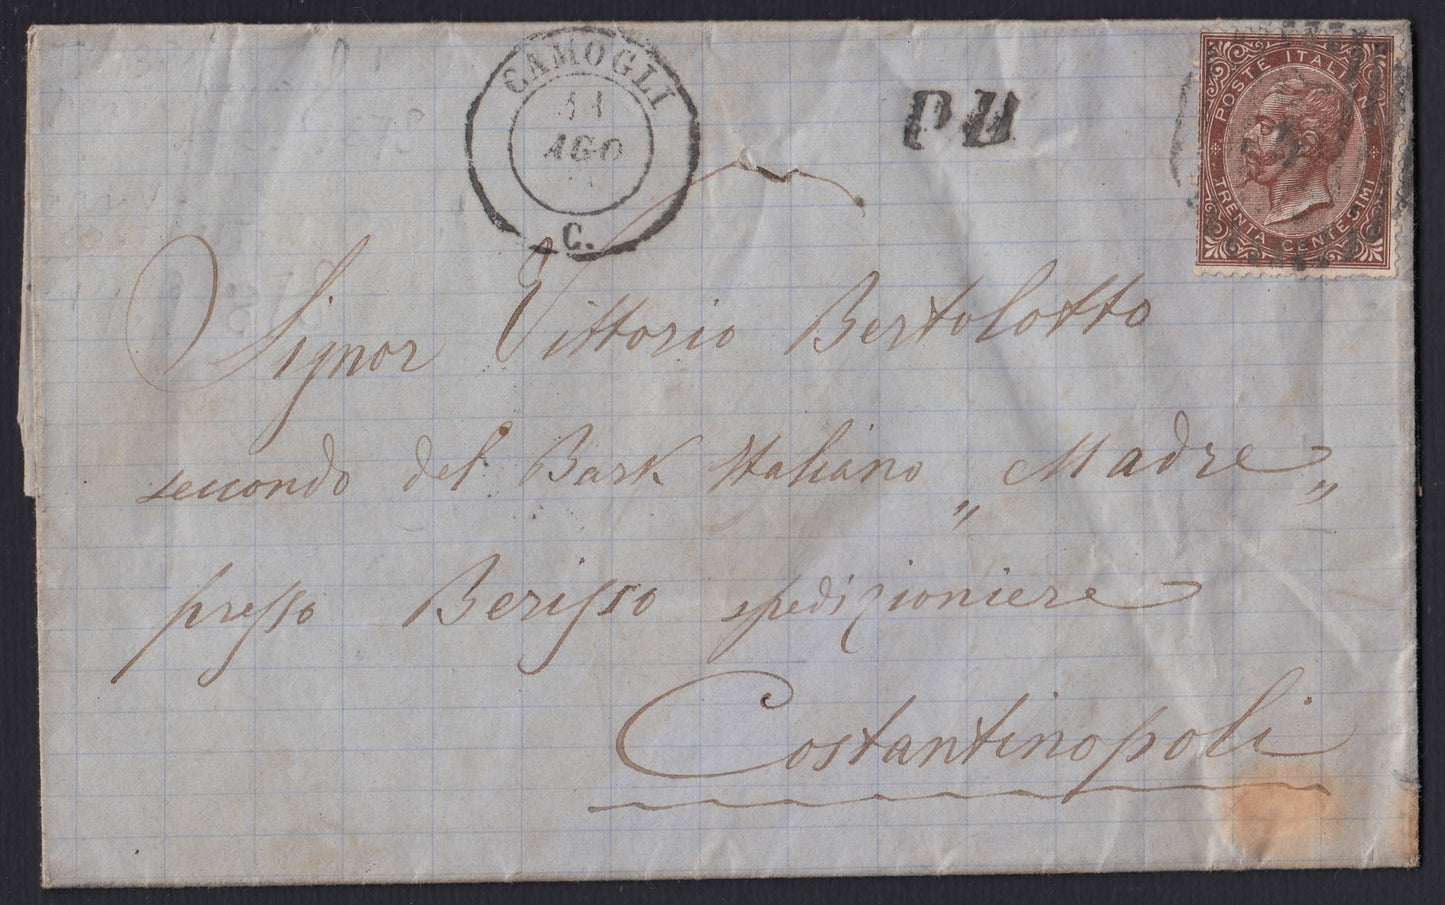 CAMOGLI
11
AGO
C.
P.D
POSTE ITALIANE
TRENTA CENTESIMI
Signor Vittorio Bertolotto
seccondo del Bark Italiano „Madre„
presso Berisso spedizioniere
Costantinopoli